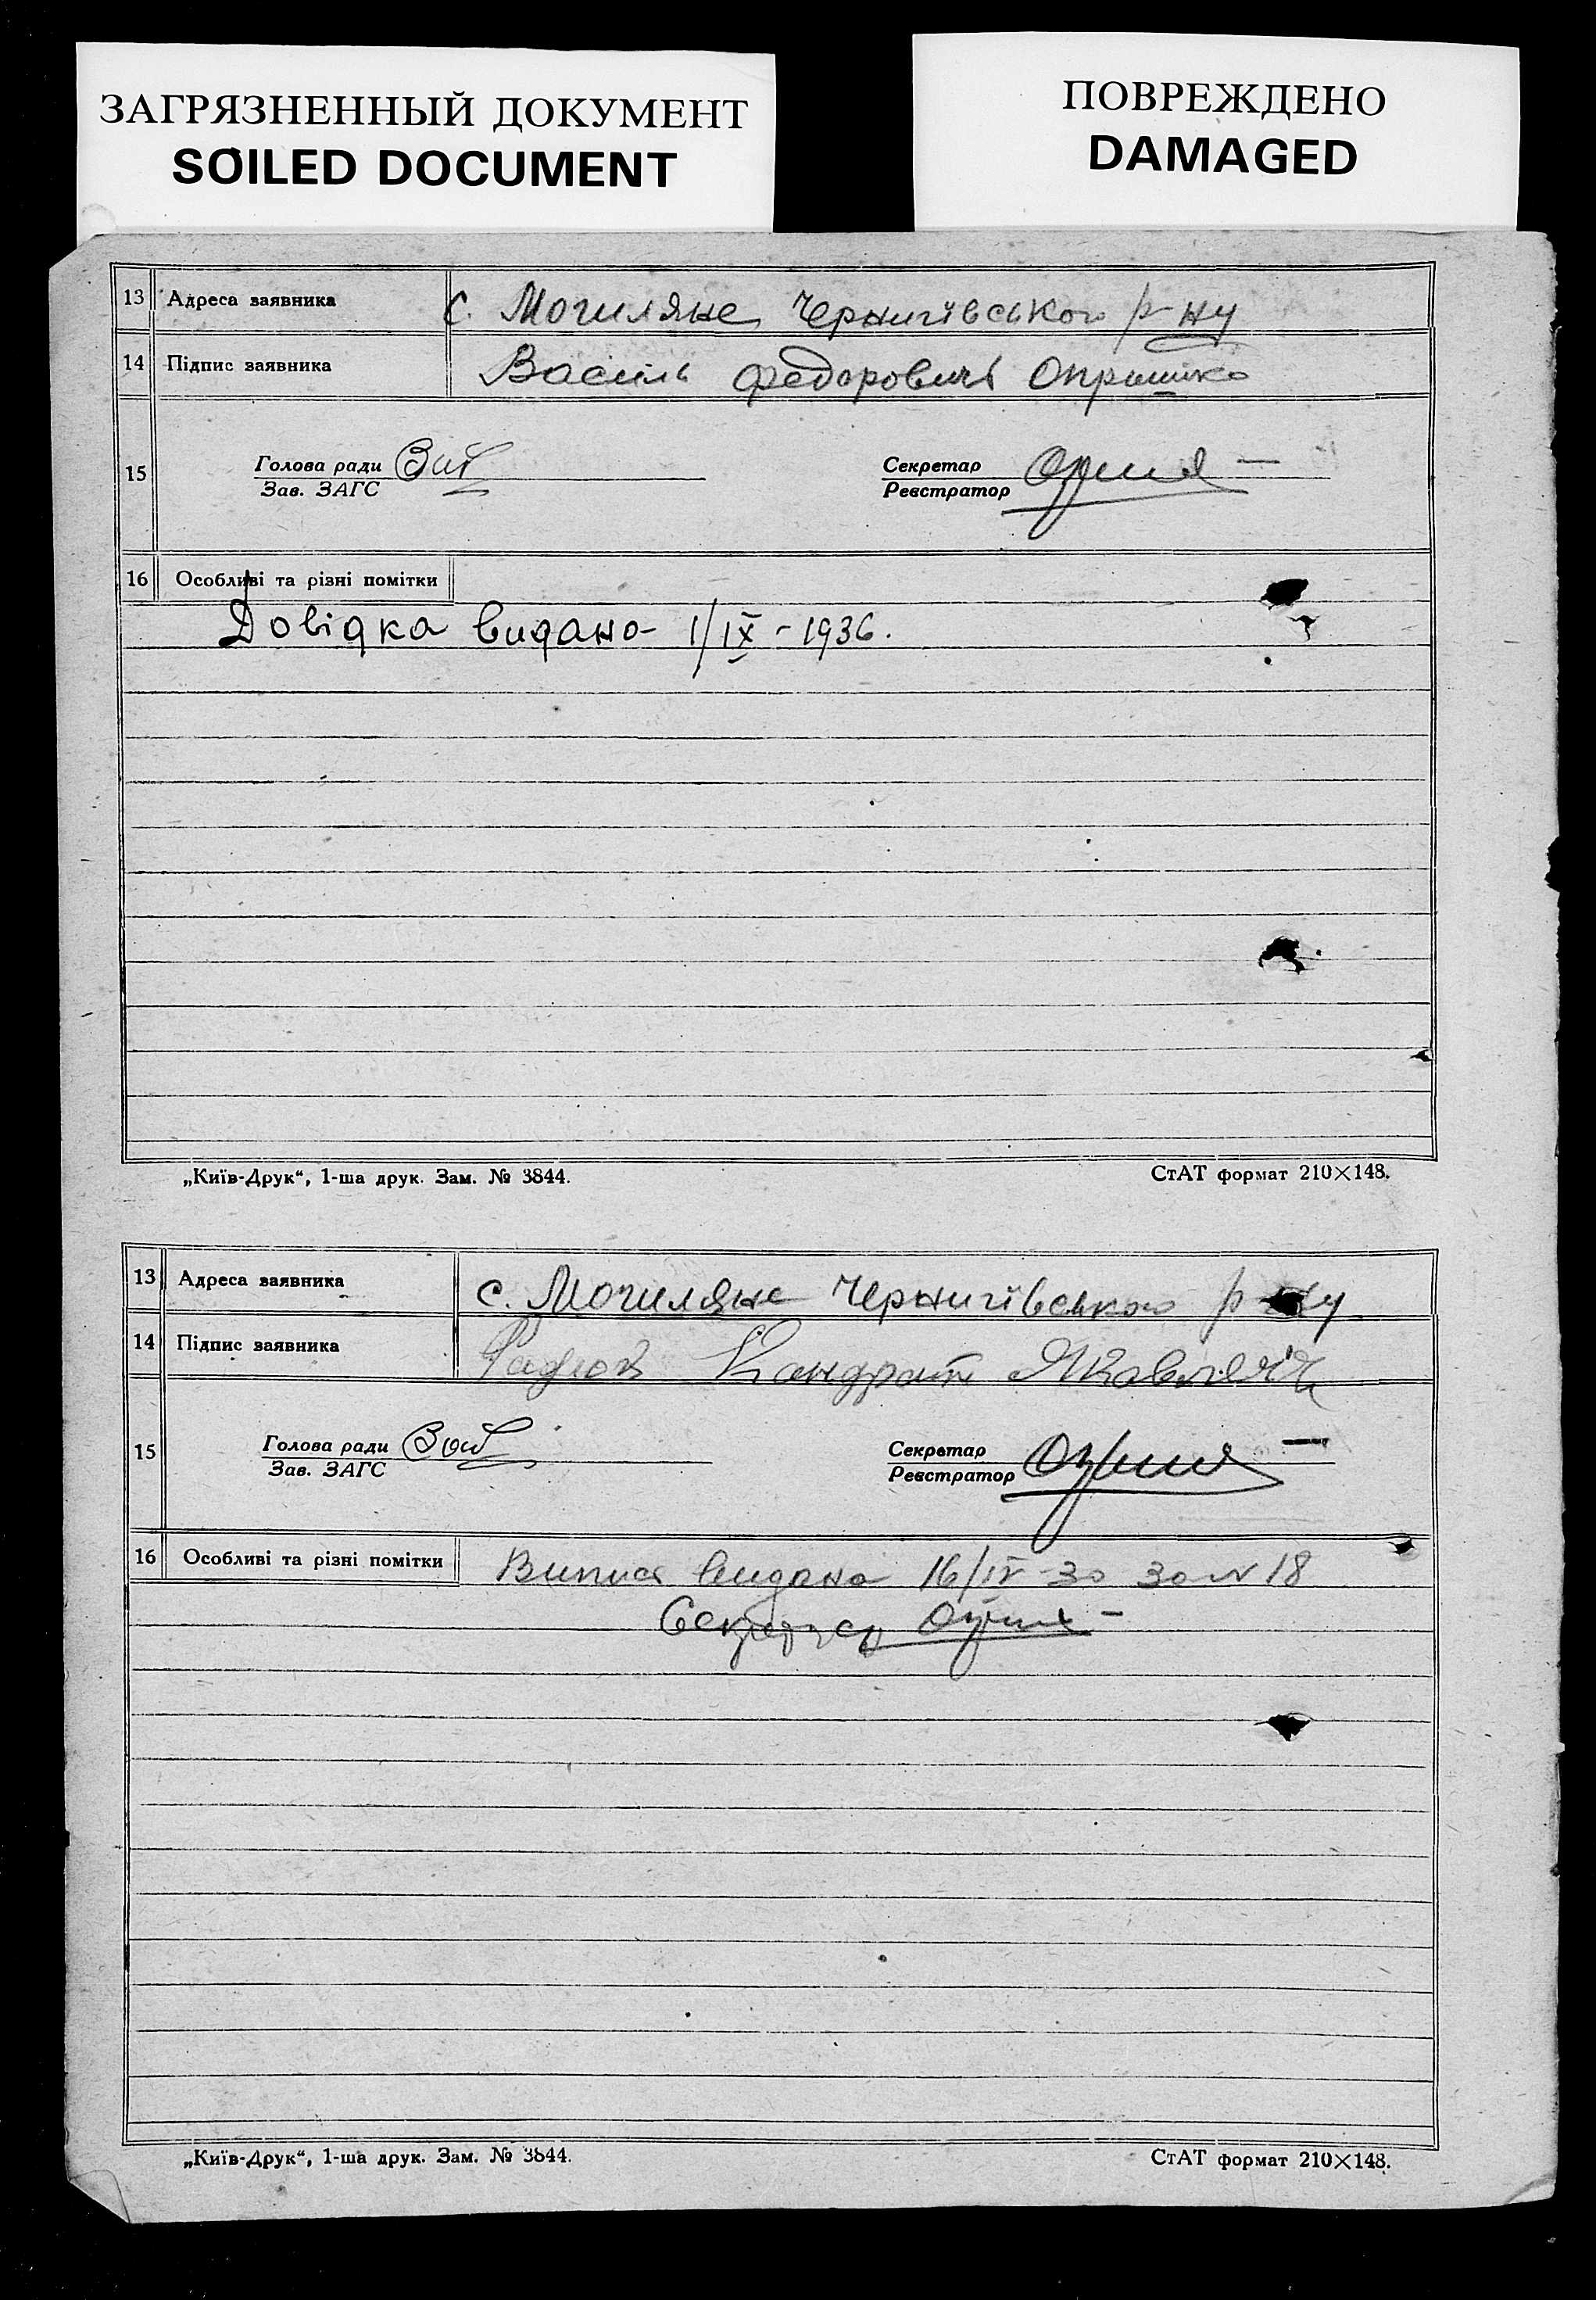 ЗАГРЯЗНЕННЫЙ ДОКУМЕНТ
SOILED DOCUMENT
ПОВРЕЖДЕНО
DAMAGED
13 Адреса заявника с. Могиляне Чернигівського р-ну
14 Підпис заявника Василь Федорович Опришко
15 Голова ради
Зав. ЗАГС
Секретар
Реєстратор
16 Особливі та різні помітки
Довідка видано 1/IX - 1936.
„Київ-Друк“, 1-ша друк. Зам. № 3844. СтАТ формат 210×148.
13 Адреса заявника с. Могиляне Чернигівського р-ну
14 Підпис заявника Кондрат Якович
15 Голова ради
Зав. ЗАГС
Секретар
Реєстратор
16 Особливі та різні помітки Випись видано 16/IV-30 за N 18
Секретар
„Київ-Друк“, 1-ша друк. Зам. № 3844. СтАТ формат 210×148.